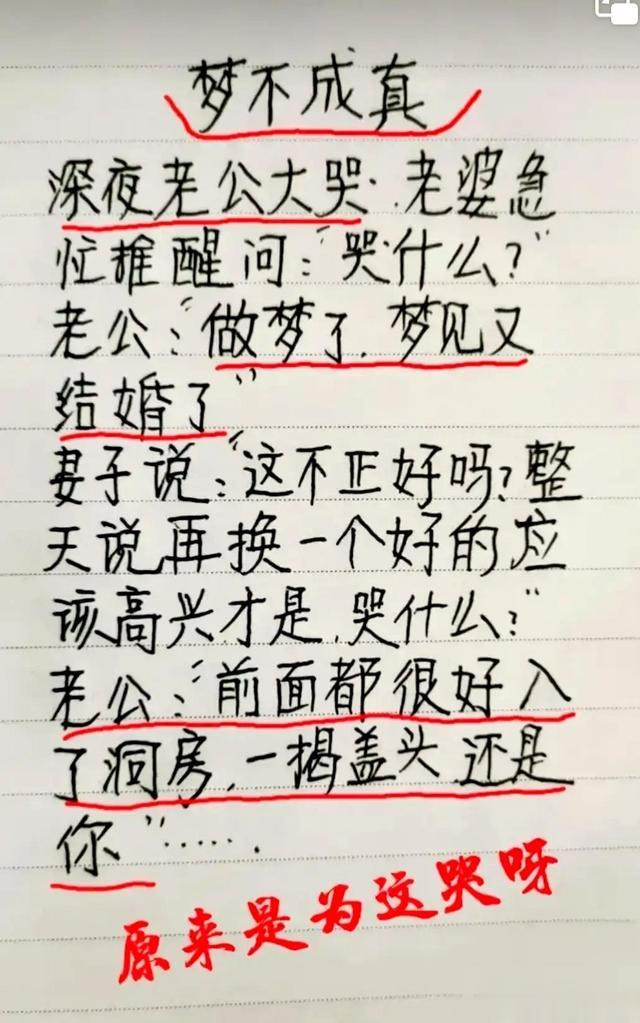 梦不成真
深夜老公大哭.老婆急
忙推醒问:"哭什么?"
老公:"做梦了.梦见又
结婚了"
妻子说:"这不正好吗?整
天说再换一个好的应
该高兴才是.哭什么?"
老公:"前面都很好入
了洞房,一揭盖头还是
你"……
原来是为这哭呀